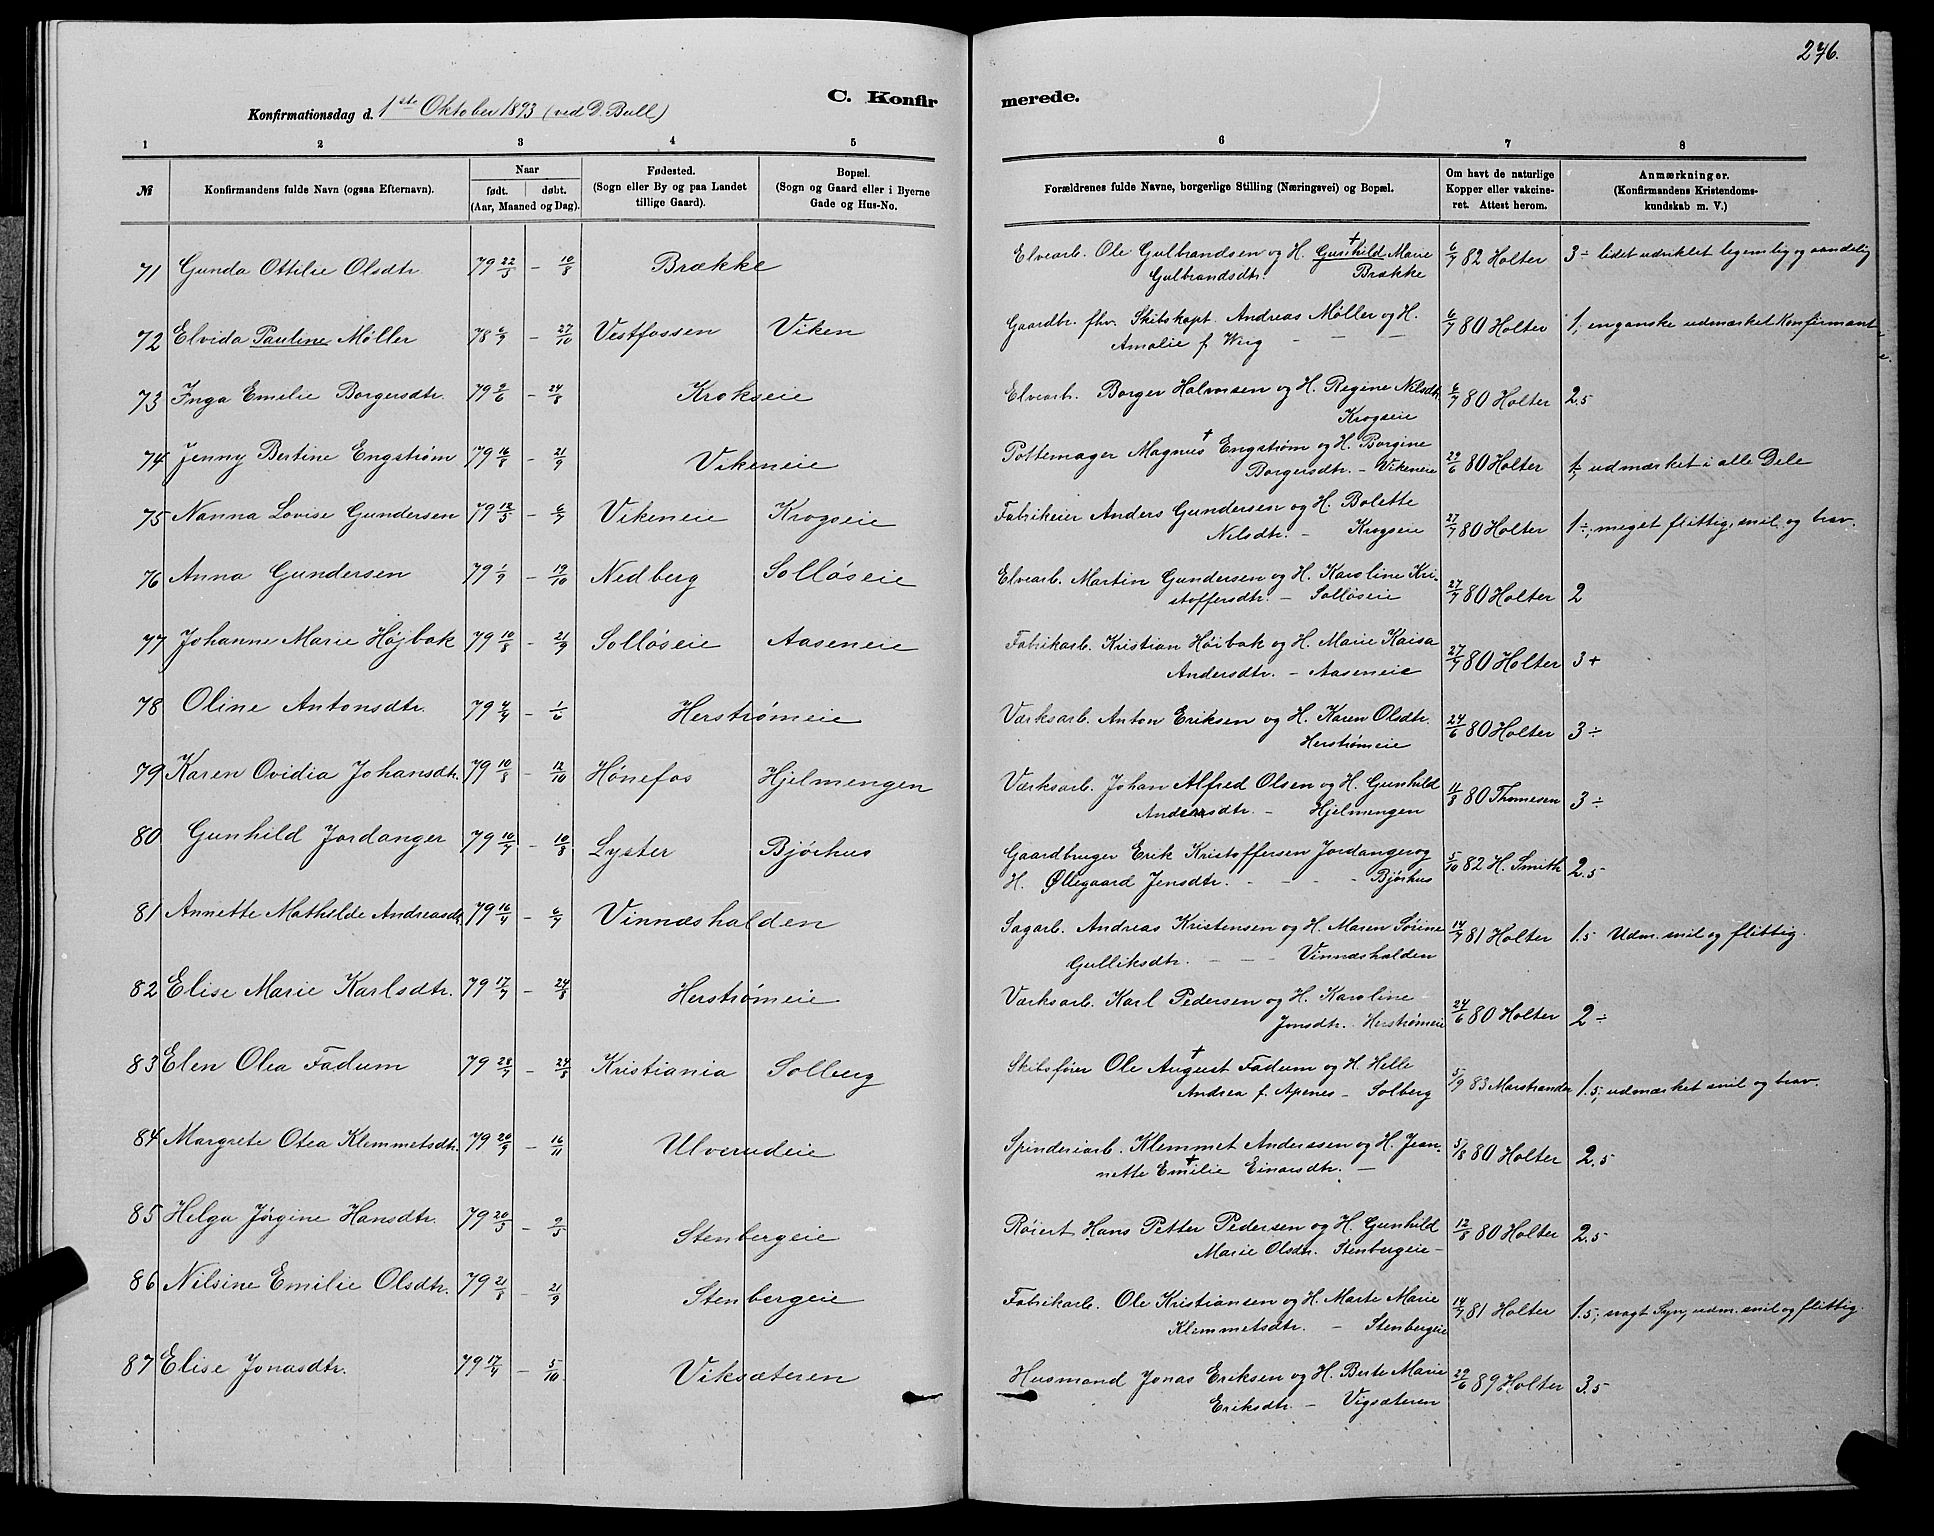 276.
C. Konfirmerede.
Konfirmationsdag d. 1ste Oktober 1893 (ved D. Bull)
1 2 3 4 5 6 7 8
№ Konfirmandens fulde Navn (ogsaa Efternavn). Naar født. døbt. (Aar, Maaned og Dag). Fødested. (Sogn eller By og paa Landet tillige Gaard). Bopæl. (Sogn og Gaard eller i Byerne Gade og Hus-No. Forældrenes fulde Navne, borgerlige Stilling (Næringsvei) og Bopæl. Om havt de naturlige Kopper eller vakcineret. Attest herom. Anmærkninger. (Konfirmandens Kristendomskundskab m. V.)
71 Gunda Ottilie Olsdtr. 79 22/5 – 10/8 Brække Elvearb. Ole Gulbrandsen og H. Gunhild † Marie 6/7 82 Holter 3 ÷ lidet udviklet legemlig og aandelig
Gulbrandsdtr. Brække
72 Elvida Pauline Møller 78 6/9 – 27/10 Vestfossen Viken Gaardbr. fhv. Skibskapt. Andreas Møller og H. 6/7 80 Holter 1, en ganske udmærket Konfirmant
Amalie f. Wiig – – –
73 Inga Emilie Borgersdtr. 79 2/6 – 24/8 Krokseie Elvearb. Borger Halvorsen og H. Regine Nilsdtr. 6/7 80 Holter 2.5
Krogseie
74 Jenny Bertine Engstrøm 79 16/8 – 21/9 Vikeneie Pottemager Magnus † Engstrøm og H. Borgine
Borgersdtr. – Vikeneie 29/6 80 Holter 1, udmærket i alle Dele
75 Nanna Lovise Gundersen 79 12/5 – 6/7 Vikeneie Krogseie Fabrikeier Anders Gundersen og H. Bolette
Nilsdtr. – Krogseie 27/7 80 Holter 1 ÷, meget flittig, snil og brav.
76 Anna Gundersen 79 1/9 – 19/10 Nedberg Solløseie Elvearb. Martin Gundersen og H. Karoline Kri-
stoffersdtr. – Solløseie 27/7 80 Holter 2
77 Johanne Marie Højbak 79 10/8 – 21/9 Solløseie Aaseneie Fabrikarb. Kristian Høibak og H. Marie Kaisa
Andersdtr. – Aaseneie 27/7 80 Holter 3 +
78 Oline Antonsdtr. 79 4/4 – 1/6 Herstrømeie Værksarb. Anton Eriksen og H. Karen Olsdtr. 24/6 80 Holter 3 ÷
Herstrømeie
79 Karen Ovidia Johansdtr. 79 10/8 – 12/10 Hønefos Hjelmengen Værksarb. Johan Alfred Olsen og H. Gunhild 11/8 80 Thomesen 3 ÷
Andersdtr. – Hjelmengen
80 Gunhild Jordanger 79 10/7 – 10/8 Lyster Bjørhus Gaardbruger Erik Kristoffersen Jordanger og 5/10 82 H. Smith 2.5
H. Øllegaard Jensdtr. – – – Bjørhus
81 Annette Mathilde Andreasdtr. 79 16/4 – 6/7 Vinnæshalden Sagarb. Andreas Kristensen og H. Maren Sørine 14/7 81 Holter 1.5 Udm. snil og flittig.
Gulliksdtr. – – – Vinnæshalden
82 Elise Marie Karlsdtr. 79 17/7 – 24/8 Herstrømeie Værksarb. Karl Pedersen og H. Karoline 24/6 80 Holter 2 ÷
Jonsdtr. Herstrømeie
83 Elen Olea Fadum 79 28/7 – 24/8 Kristiania Solberg Skibsfører Ole August † Fadum og H. Helle 5/9 83 Marstrander 1.5, udmærket snil og brav.
Andrea f. Apenes – Solberg
84 Margrete Otea Klemmetsdtr. 79 20/9 – 16/11 Ulverudeie Spinderiarb. Klemmet Anderssen og H. Jean- 5/8 80 Holter 2.5
nette Emilie † Einarsdtr. –
85 Helga Jørgine Hansdtr. 79 20/3 – 9/5 Stenbergeie Røiert Hans Petter Pedersen og H. Gunhild 12/8 80 Holter 2.5
Marie Olsdtr. Stenbergeie –
86 Nilsine Emilie Olsdtr. 79 21/8 – 21/9 Stenbergeie Fabrikarb. Ole Kristiansen og H. Marte Marie 14/7 81 Holter 1.5, svagt Syn, udm. snil og flittig.
Klemmetsdtr. – Stenbergeie
87 Elise Jonasdtr. 79 17/4 – 5/10 Viksæteren Husmand Jonas Eriksen og H. Berte Marie 29/6 89 Holter 3.5
Eriksdtr. – Vigsæteren